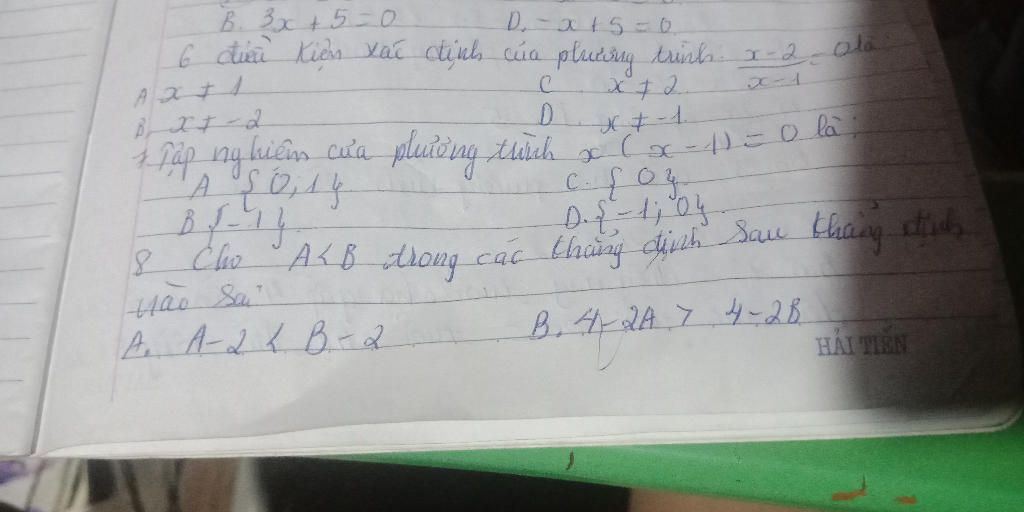 B. 3x + 5 = 0 D. -x + 5 = 0
6 điều kiện xác định của phương trình x-2/x-1 = 0 là
A x ≠ 1 C x ≠ 2
B. x ≠ -2 D. x ≠ -1
7 Tập nghiệm của phường trình x (x - 1) = 0 là:
A {0; 1} C. {0}
B {-1} D. {-1; 0}
8 Cho A < B trong các thẳng định sau thẳng định
nào sai
A. A - 2 < B - 2 B. 4 - 2A > 4 - 2B
HẢI TIẾN